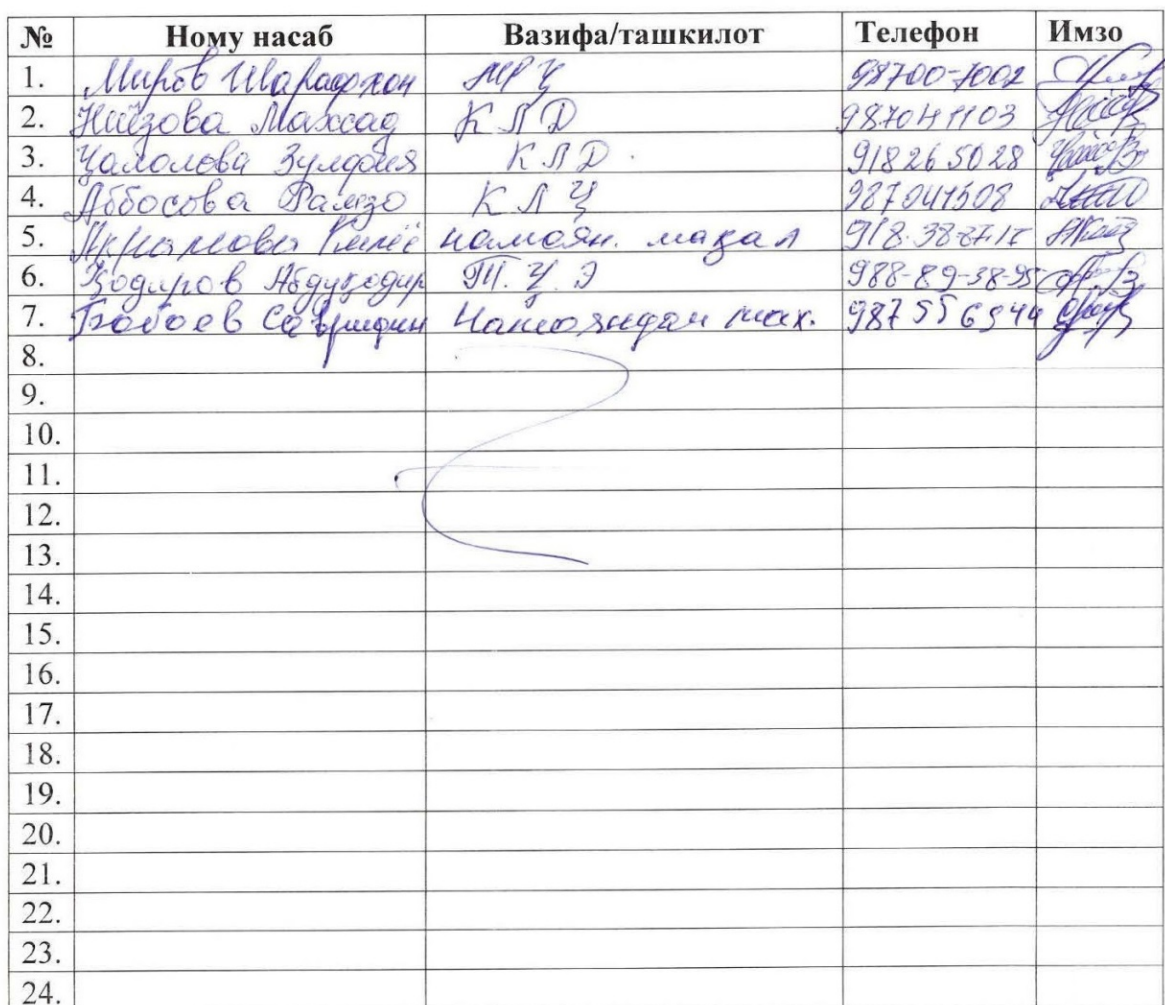 № Ному насаб Вазифа/ташкилот Телефон Имзо
1. Миров Шарафхон 98700-7002
2. Ниёзова Махсад КЛД 987041103
3. Ҷалолова Зулфия КЛД. 918265028
4. Аббосова Фарузо КЛҶ 987041508
5. намоян. махал 918-38-87-17
6. Қодиров Абдуқодир Т.Ҷ.Э 988-89-38-95
7. Бобоев Сайридин Намояндаи мах. 987556544
8.
9.
10.
11.
12.
13.
14.
15.
16.
17.
18.
19.
20.
21.
22.
23.
24.